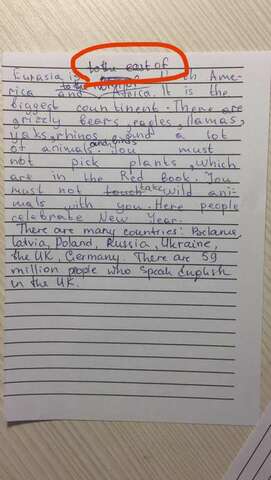 to the east of
Eurasia is North Ame-
to the north of
rica and Africa. It is the
biggest countinent. There are
grizzly bears, eagles, llamas,
yaks, rhinos, and a lot
of animals and birds. You must
not pick plants, which
are in the Red Book. You
must not touch take wild ani-
mals with you. Here people
celebrate New Year.
There are many countries: Belarus,
Latvia, Poland, Russia, Ukraine,
the UK, Germany. There are 59
million people who speak English
in the UK.